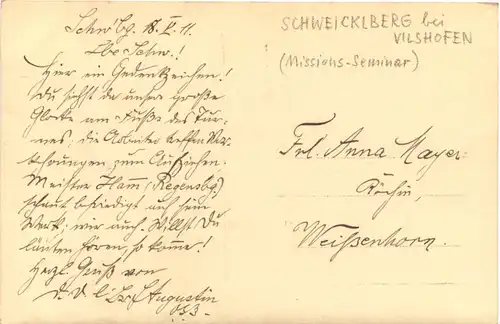 Schw'bg. 18. V. 11.
Lbe Schw.!
Hier ein Gedenkzeichen!
Du siehst da unsre große
Glocke am Fuße des Tur-
mes; die Arbeiter treffen Vor-
kehrungen zum Aufziehen.
Meister Hamm (Regensbg)
schaut befriedigt auf sein
Werk; wir auch. Willst Du
läuten hören, so komme!
Herzl. Gruß von
Augustin
SCHWEICKLBERG bei
VILSHOFEN
(Missions-Seminar)
Frl. Anna Mayer
Köchin,
Weißenhorn.